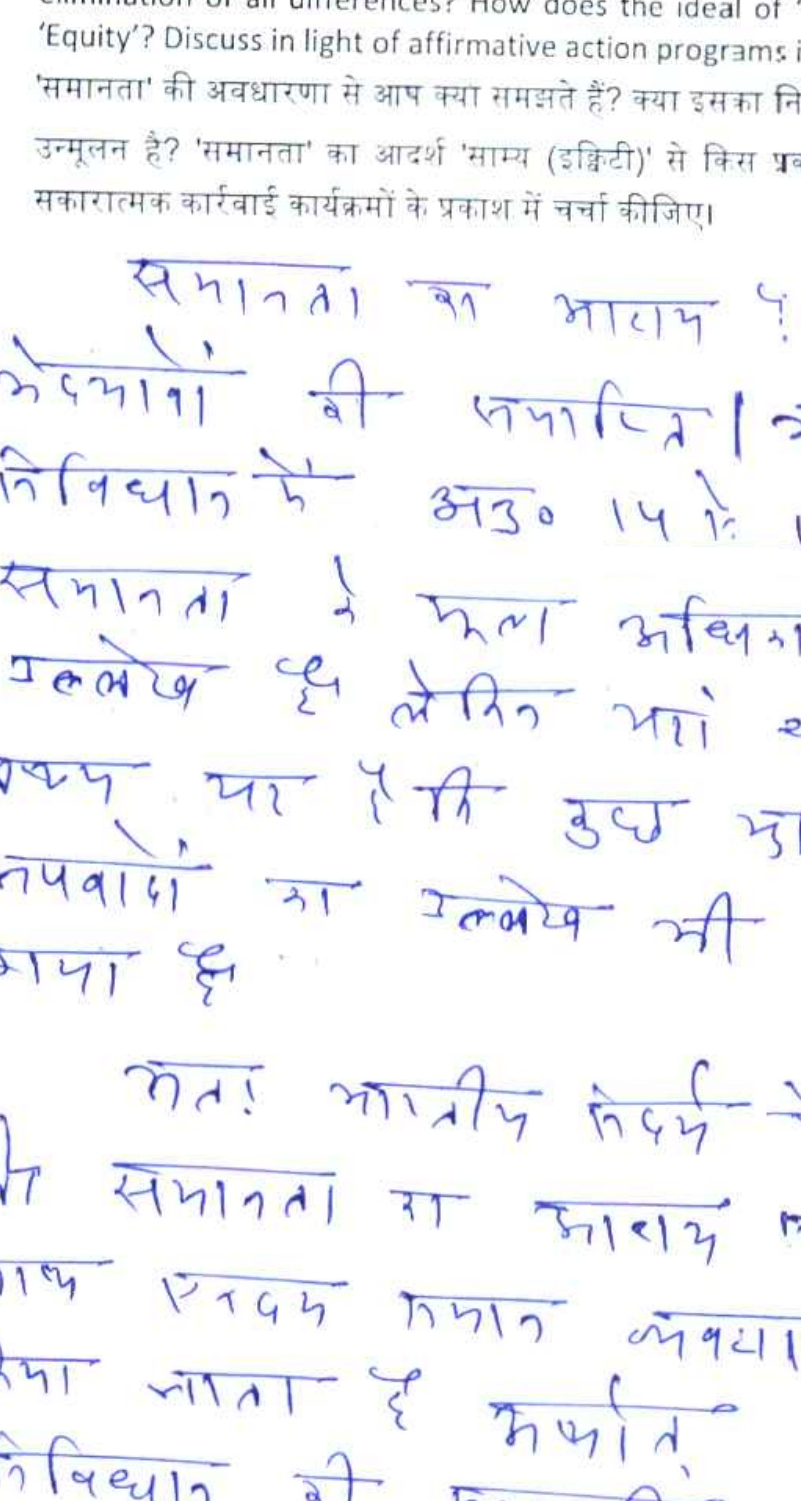 elimination of all differences? How does the ideal of '
'Equity'? Discuss in light of affirmative action programs i
'समानता' की अवधारणा से आप क्या समझते हैं? क्या इसका नि
उन्मूलन है? 'समानता' का आदर्श 'साम्य (इक्विटी)' से किस प्रक
सकारात्मक कार्रवाई कार्यक्रमों के प्रकाश में चर्चा कीजिए।
समानता का आशय है
भेदभावों की समाप्ति।
संविधान के अनु० 14 से
समानता के मूल अधिका
उल्लेख है लेकिन यहां
तथ्य यह है कि कुछ
अपवादों का उल्लेख भी
गया है
अतः भारतीय संदर्भ
समानता का आशय
साथ एकदम समान व्यवहा
किया जाता है अर्थात्
संविधान की